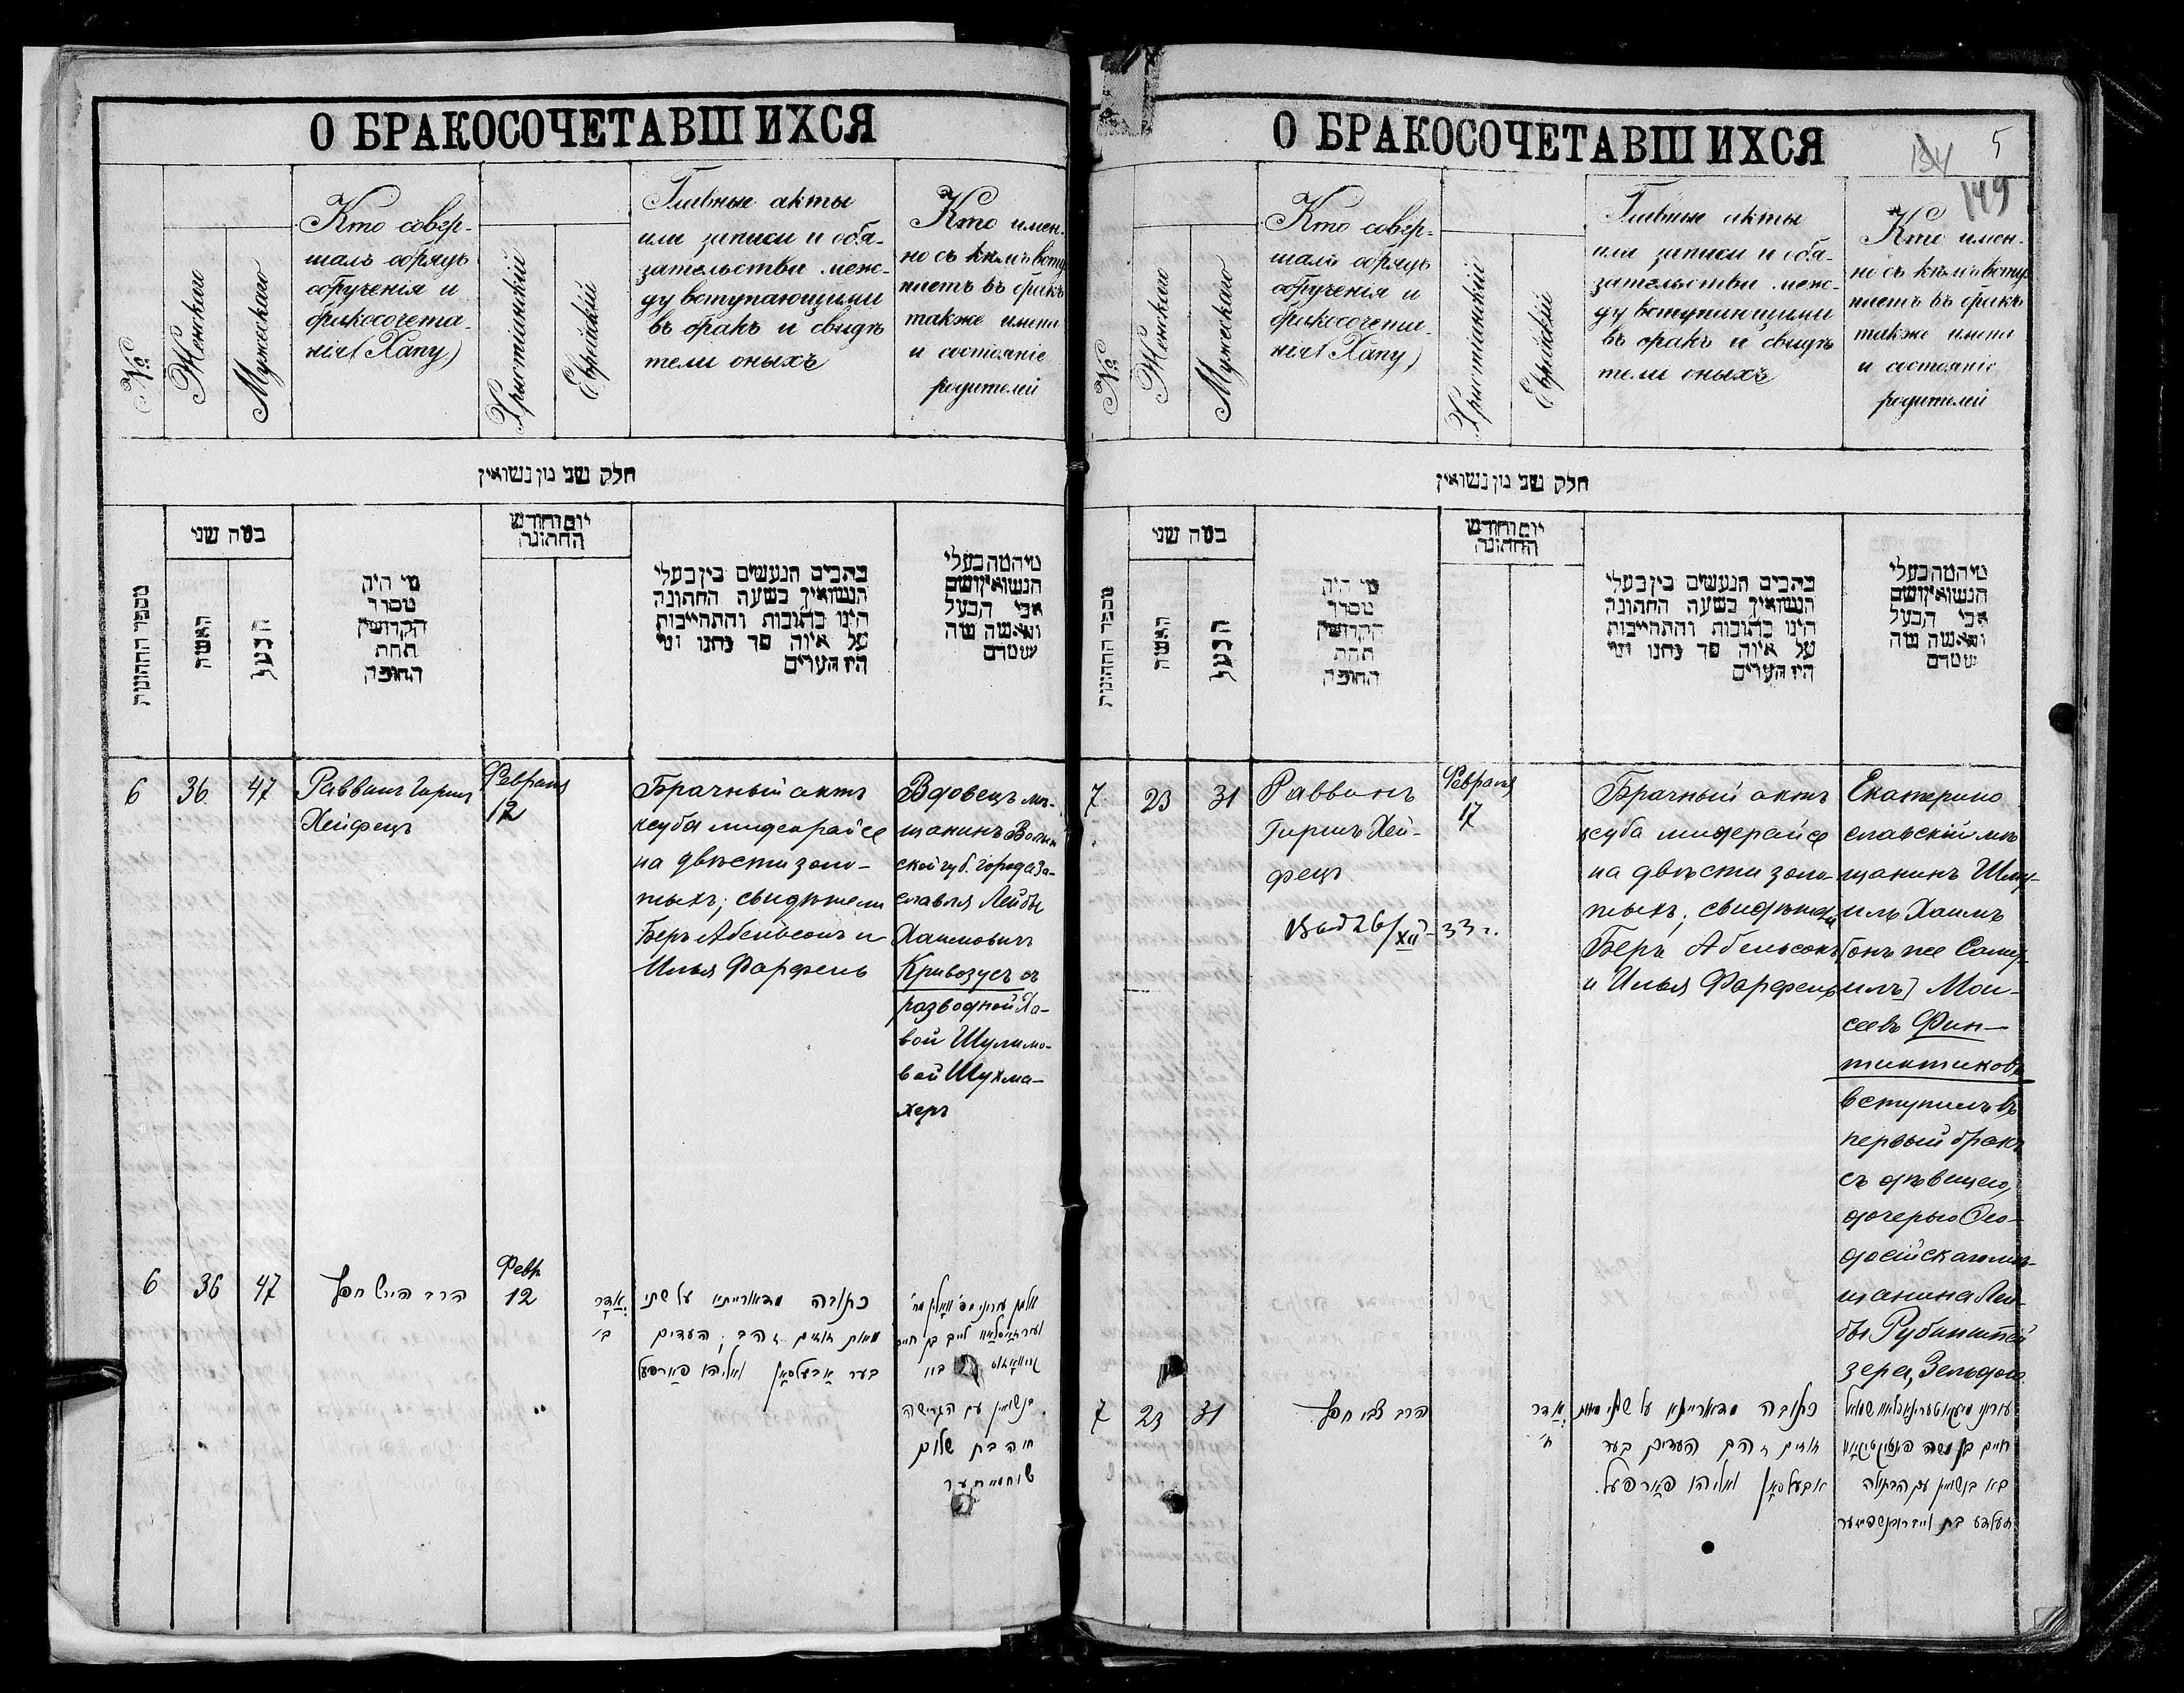 О БРАКОСОЧЕТАВШИХСЯ
№
Женскаго
Мужескаго
Кто совер-
шалъ обрядъ
обрученія и
бракосочета-
нія (Хапу)
Христіанскій
Еврейскій
Главные акты
или записи и обя-
зательства меж-
ду вступающими
въ бракъ и свидѣ
тели оныхъ
Кто имен-
но съ кѣмъ всту
паетъ въ бракъ
также имена
и состояніе
родителей
חלק שני מן נשואין
מספר החתונות
כמה שני
האשה
הבעל
מי היה
מסדר
הקדושין
תחת
החופה
יום וחודש
החתונה
כתבים הנעשים בין בעלי
הנשואין בשעה החתונה
הינו כתובות והתהייבות
על איזה סך נתנו ומי
היו העדים
מיהמה בעלי
הנשואין ושם
אבי הבעל
והאשה מה
שמדם
6
36
47
Раввинъ Гиршъ
Хейфецъ
Февраля
12
Брачный актъ
ксуба мидеорайсе
на двѣсти золо-
тыхъ; свидѣтели
Беръ Абельсонъ и
Илья Фарфель
Вдовецъ мѣ-
щанинъ Волын
ской губ. города За-
славля Лейбы
Хаимовичъ
Кривозусъ съ
разводной Ха-
вой Шулимо-
вой Шухма-
херъ
6
36
47
הרב הירש חפץ
Февр
12
אדר
כתובה מדאורייתא על שתי
מאות זהב; העדים
בער אבעלסאן ואליהו פארפעל
לייב בן חיים
בנשואין עם הגרושה
חוה בת שלום
שוחמייחער
О БРАКОСОЧЕТАВШИХСЯ
5
149
№
Женскаго
Мужескаго
Кто совер-
шалъ обрядъ
обрученія и
бракосочета-
нія (Хапу)
Христіанскій
Еврейскій
Главные акты
или записи и обя-
зательства меж-
ду вступающими
въ бракъ и свидѣ
тели оныхъ
Кто имен-
но съ кѣмъ всту
паетъ въ бракъ
также имена
и состояніе
родителей
חלק שני מן נשואין
מספר החתונות
כמה שני
האשה
הבעל
מי היה
מסדר
הקדושין
תחת
החופה
יום וחודש
החתונה
כתבים הנעשים בין בעלי
הנשואין בשעה החתונה
הינו כתובות והתהייבות
על איזה סך נתנו ומי
היו העדים
מיהמה בעלי
הנשואין ושם
אבי הבעל
והאשה מה
שמדם
7
23
31
Раввинъ
Гиршъ Хей-
фецъ
26/XII-33 г.
Февраля
17
Брачный актъ
ксуба мидерайсе
на двѣсти золо-
тыхъ; свидѣтели
Беръ Абельсонъ
и Илья Фарфель
Екатерино
славскій мѣ
щанинъ Шму-
иль Хаимъ
(онъ же Саму-
илъ) Мои-
сеевъ Фин-
тиктиковъ
вступилъ въ
первый бракъ
съ дѣвицею,
дочерью Ѳео-
досійскаго мѣ-
щанина Лей-
бы Рубинштей
зера, Зельдою
7
23
31
הרב צבי חפץ
אדר
ח'
כתובה מדאורייתא על שתי מאות
זהב העדים בער
אבעלסאן ואליהו פארפעל.
שמואל
חיים בן משה
בא בנשואין עם הבתולה
זעלדע בת